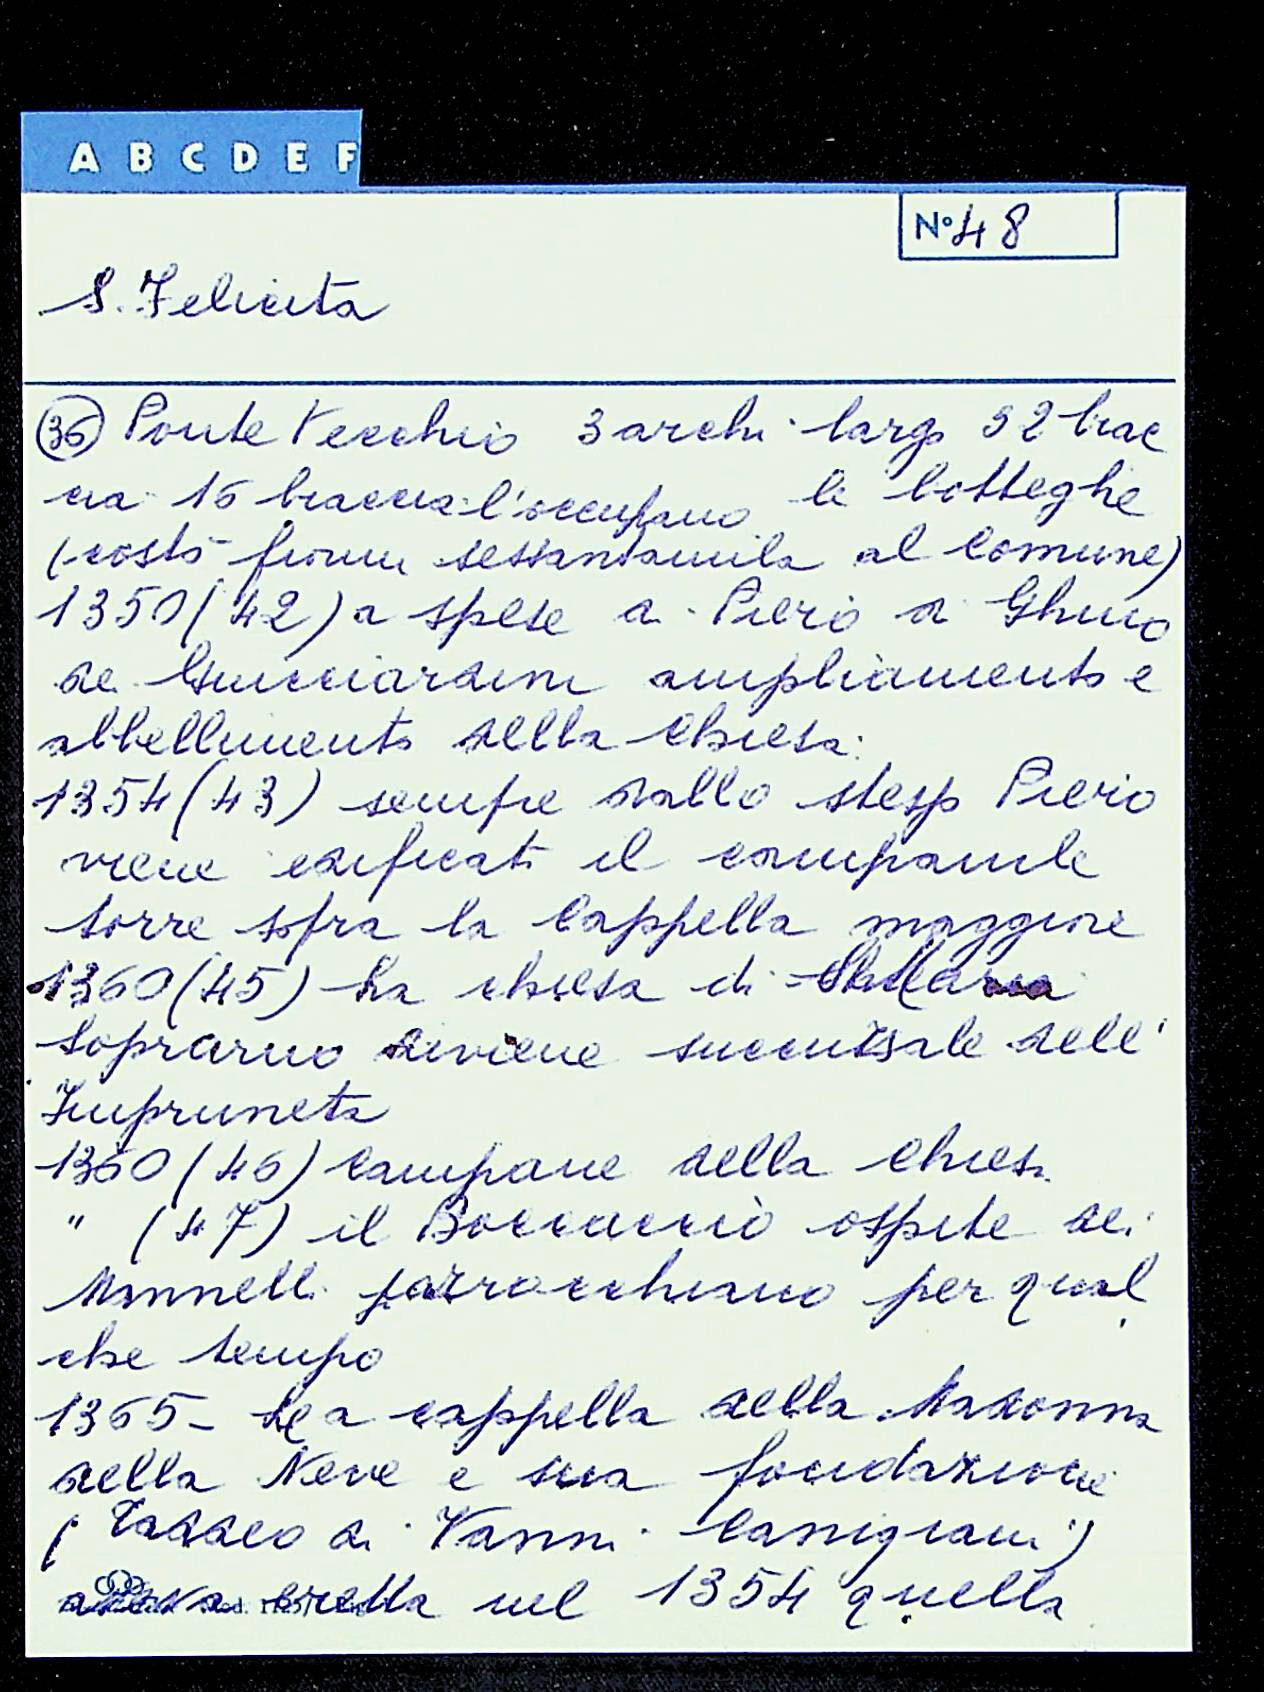 A B C D E F
N° 48
S. Felicita
(36) Ponte Vecchio 3 archi largo 32 brac
cia 16 braccia l'occupano le botteghe
(costò fiorini sessantamila al Comune)
1350 (42) a spese di Piero di Ghino
de Guicciardini ampliamento e
abbellimento della Chiesa.
1354 (43) sempre dallo stesso Piero
viene edificato il campanile
torre sopra la Cappella maggiore
1360 (45) La chiesa di S. Maria
Soprarno diviene succursale dell'
Impruneta
1360 (46) Campane della Chiesa
" (47) il Boccaccio ospite dei
Mannelli parrocchiano per qual
che tempo
1365 - La cappella della Madonna
della Neve e sua fondazione
(Taddeo di Vanni Canigiani)
aveva eretta nel 1354 quella